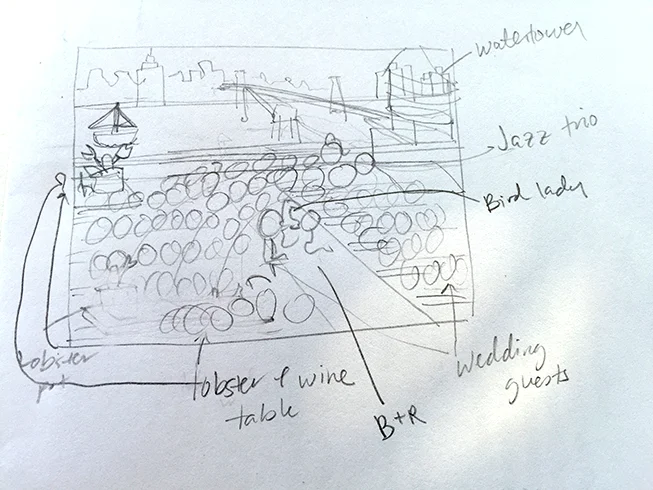 watertower
Jazz trio
Bird lady
lobster
pot
lobster & wine
table
B+R
Wedding
guests